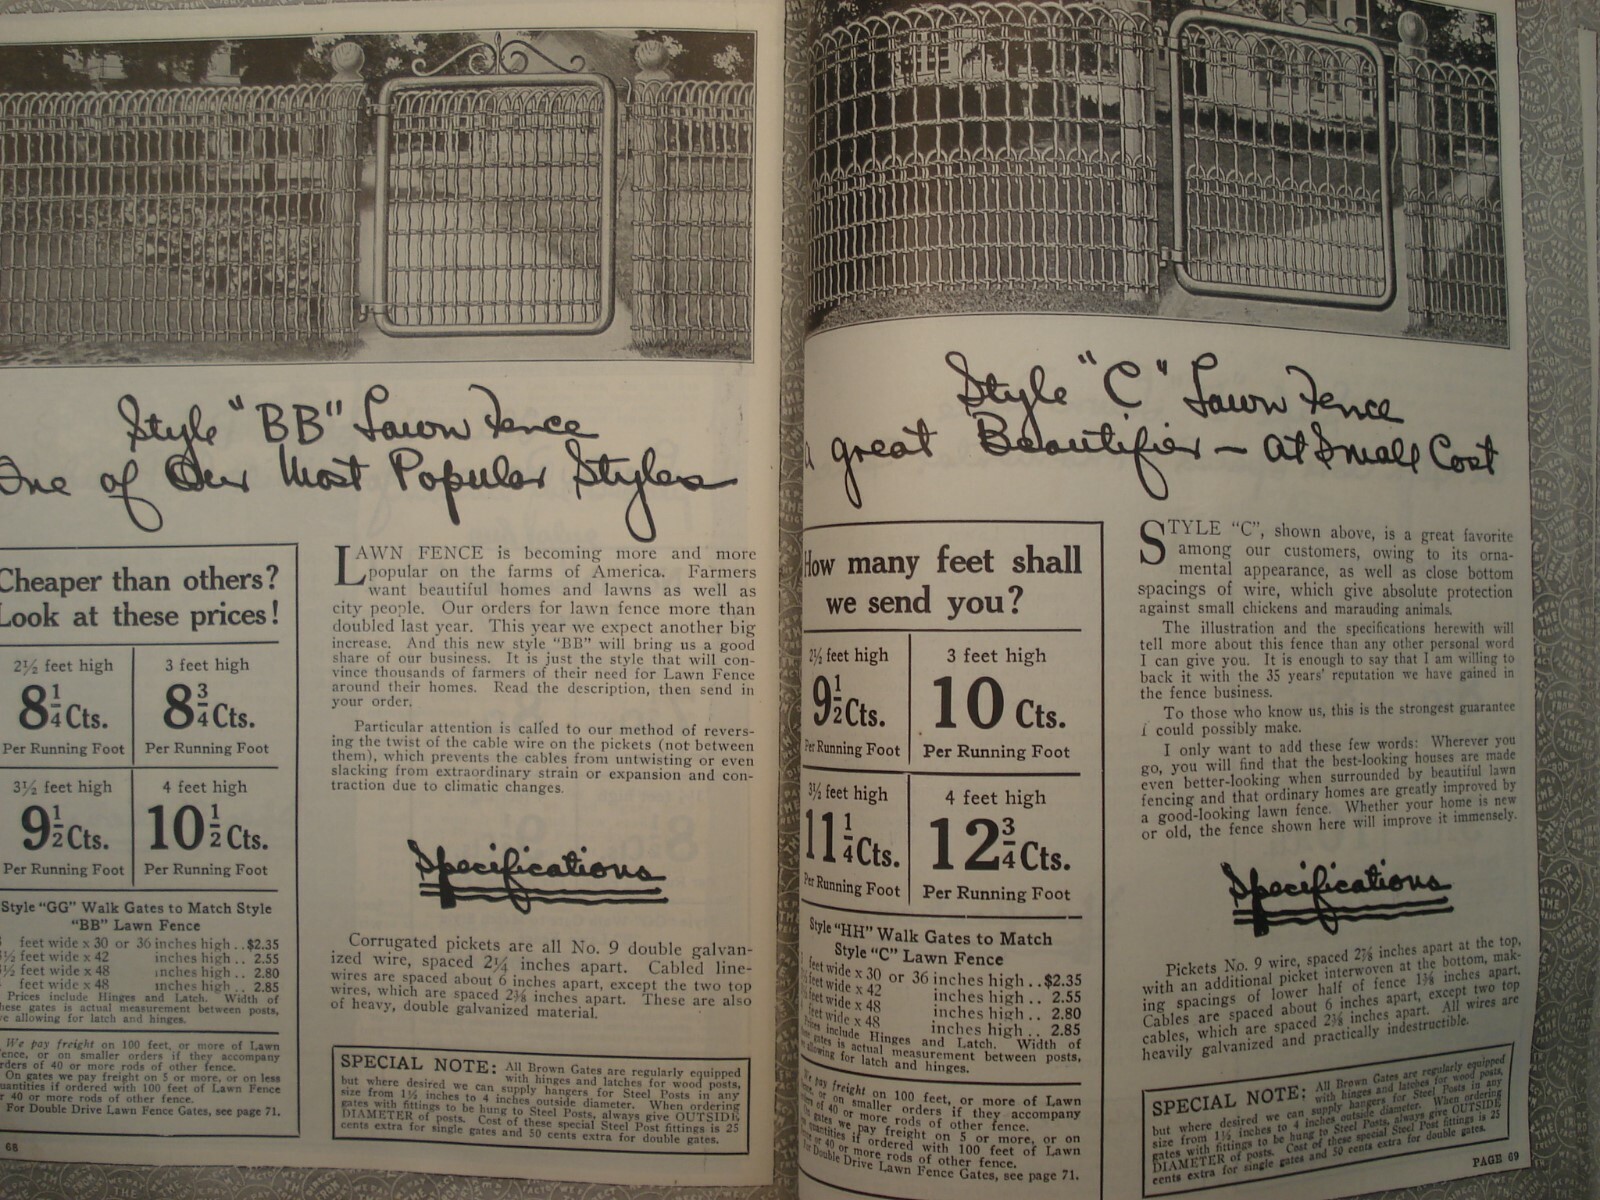 Style "BB" Lawn Fence
One of Our Most Popular Styles
Cheaper than others?
Look at these prices!
2½ feet high
8¼ Cts.
Per Running Foot
3 feet high
8¾ Cts.
Per Running Foot
3½ feet high
9½ Cts.
Per Running Foot
4 feet high
10½ Cts.
Per Running Foot
Style "GG" Walk Gates to Match Style
"BB" Lawn Fence
feet wide x 30 or 36 inches high..$2.35
½ feet wide x 42 inches high.. 2.55
½ feet wide x 48 inches high.. 2.80
feet wide x 48 inches high.. 2.85
Prices include Hinges and Latch. Width of
these gates is actual measurement between posts,
we allowing for latch and hinges.
We pay freight on 100 feet, or more of Lawn
Fence, or on smaller orders if they accompany
orders of 40 or more rods of other fence.
On gates we pay freight on 5 or more, or on less
quantities if ordered with 100 feet of Lawn Fence
or 40 or more rods of other fence.
For Double Drive Lawn Fence Gates, see page 71.
68
LAWN FENCE is becoming more and more
popular on the farms of America. Farmers
want beautiful homes and lawns as well as
city people. Our orders for lawn fence more than
doubled last year. This year we expect another big
increase. And this new style "BB" will bring us a good
share of our business. It is just the style that will con-
vince thousands of farmers of their need for Lawn Fence
around their homes. Read the description, then send in
your order.
Particular attention is called to our method of revers-
ing the twist of the cable wire on the pickets (not between
them), which prevents the cables from untwisting or even
slacking from extraordinary strain or expansion and con-
traction due to climatic changes.
Specifications
Corrugated pickets are all No. 9 double galvan-
ized wire, spaced 2¼ inches apart. Cabled line-
wires are spaced about 6 inches apart, except the two top
wires, which are spaced 2⅜ inches apart. These are also
of heavy, double galvanized material.
SPECIAL NOTE: All Brown Gates are regularly equipped
with hinges and latches for wood posts,
but where desired we can supply hangers for Steel Posts in any
size from 1½ inches to 4 inches outside diameter. When ordering
gates with fittings to be hung to Steel Posts, always give OUTSIDE
DIAMETER of posts. Cost of these special Steel Post fittings is 25
cents extra for single gates and 50 cents extra for double gates.
Style "C" Lawn Fence
a great Beautifier - at Small Cost
How many feet shall
we send you?
2½ feet high
9½ Cts.
Per Running Foot
3 feet high
10 Cts.
Per Running Foot
3½ feet high
11¼ Cts.
Per Running Foot
4 feet high
12¾ Cts.
Per Running Foot
Style "HH" Walk Gates to Match
Style "C" Lawn Fence
feet wide x 30 or 36 inches high..$2.35
feet wide x 42 inches high.. 2.55
feet wide x 48 inches high.. 2.80
feet wide x 48 inches high.. 2.85
Prices include Hinges and Latch. Width of
these gates is actual measurement between posts,
we allowing for latch and hinges.
We pay freight on 100 feet, or more of Lawn
Fence, or on smaller orders if they accompany
orders of 40 or more rods of other fence.
On gates we pay freight on 5 or more, or on
less quantities if ordered with 100 feet of Lawn
Fence or 40 or more rods of other fence.
For Double Drive Lawn Fence Gates, see page 71.
STYLE "C", shown above, is a great favorite
among our customers, owing to its orna-
mental appearance, as well as close bottom
spacings of wire, which give absolute protection
against small chickens and marauding animals.
The illustration and the specifications herewith will
tell more about this fence than any other personal word
I can give you. It is enough to say that I am willing to
back it with the 35 years' reputation we have gained in
the fence business.
To those who know us, this is the strongest guarantee
I could possibly make.
I only want to add these few words: Wherever you
go, you will find that the best-looking houses are made
even better-looking when surrounded by beautiful lawn
fencing and that ordinary homes are greatly improved by
a good-looking lawn fence. Whether your home is new
or old, the fence shown here will improve it immensely.
Specifications
Pickets No. 9 wire, spaced 2⅞ inches apart at the top,
with an additional picket interwoven at the bottom, mak-
ing spacings of lower half of fence 1⅜ inches apart.
Cables are spaced about 6 inches apart, except two top
cables, which are spaced 2⅜ inches apart. All wires are
heavily galvanized and practically indestructible.
SPECIAL NOTE: All Brown Gates are regularly equipped
with hinges and latches for wood posts,
but where desired we can supply hangers for Steel Posts in any
size from 1½ inches to 4 inches outside diameter. When ordering
gates with fittings to be hung to Steel Posts, always give OUTSIDE
DIAMETER of posts. Cost of these special Steel Post fittings is 25
cents extra for single gates and 50 cents extra for double gates.
PAGE 69